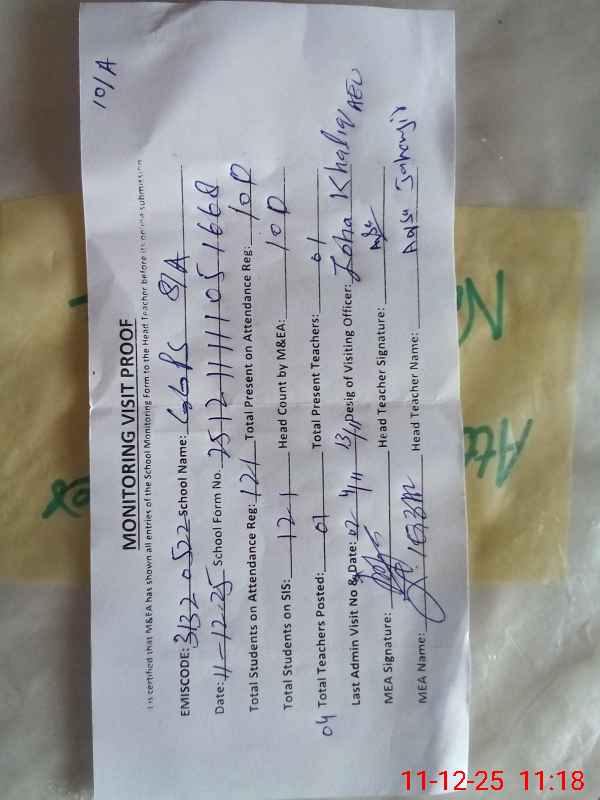 10/A
MONITORING VISIT PROOF
It is certified that M&EA has shown all entries of the School Monitoring Form to the Head Teacher before its online submission
EMISCODE: 31320522 School Name: GGPS 8/A
Date: 11-12-25 School Form No.
Total Students on Attendance Reg: 121 Total Present on Attendance Reg: 10D
Total Students on SIS: 121 Head Count by M&EA: 10D
04 Total Teachers Posted: 01 Total Present Teachers: 01
Last Admin Visit No & Date: 02 Desig of Visiting Officer: Khaliq AEO
MEA Signature: Head Teacher Signature:
MEA Name: Head Teacher Name: Jahangir
11-12-25 11:18